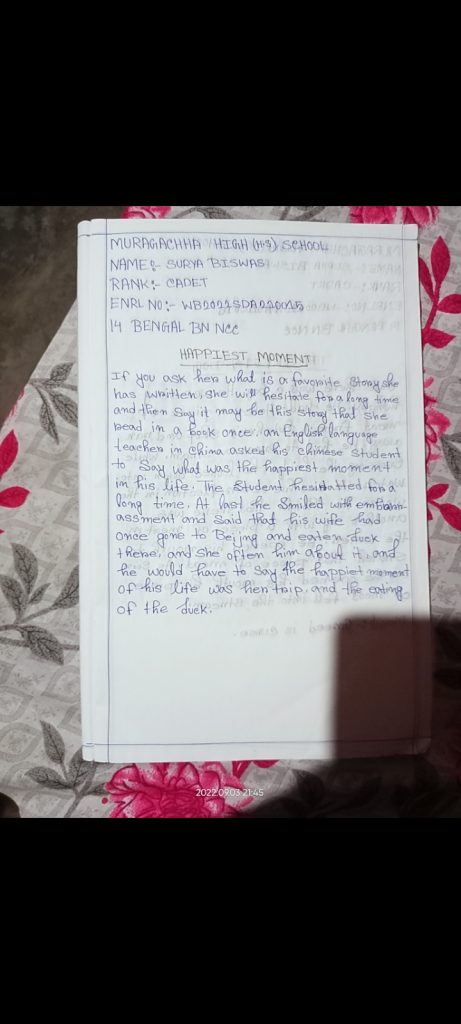 MURAGACHHA HIGH (H.S) SCHOOL
NAME:- SURYA BISWAS
RANK:- CADET
ENRL NO:- WB2021SDA220015
14 BENGAL BN NCC
HAPPIEST MOMENT
If you ask her what is a favorite story she
has written, she will hesitate for a long time
and then say it may be this story that she
read in a book once. an English language
teacher in china asked his chinese student
to say what was the happiest moment
in his life. The student hesitatted for a
long time. At last he smiled with embarr-
assment and said that his wife had
once gone to Beijng and eaten duck
there, and she often him about it, and
he would have to say the happiet moment
of his life was her trip, and the eating
of the duck.
2022.09.03 21:45